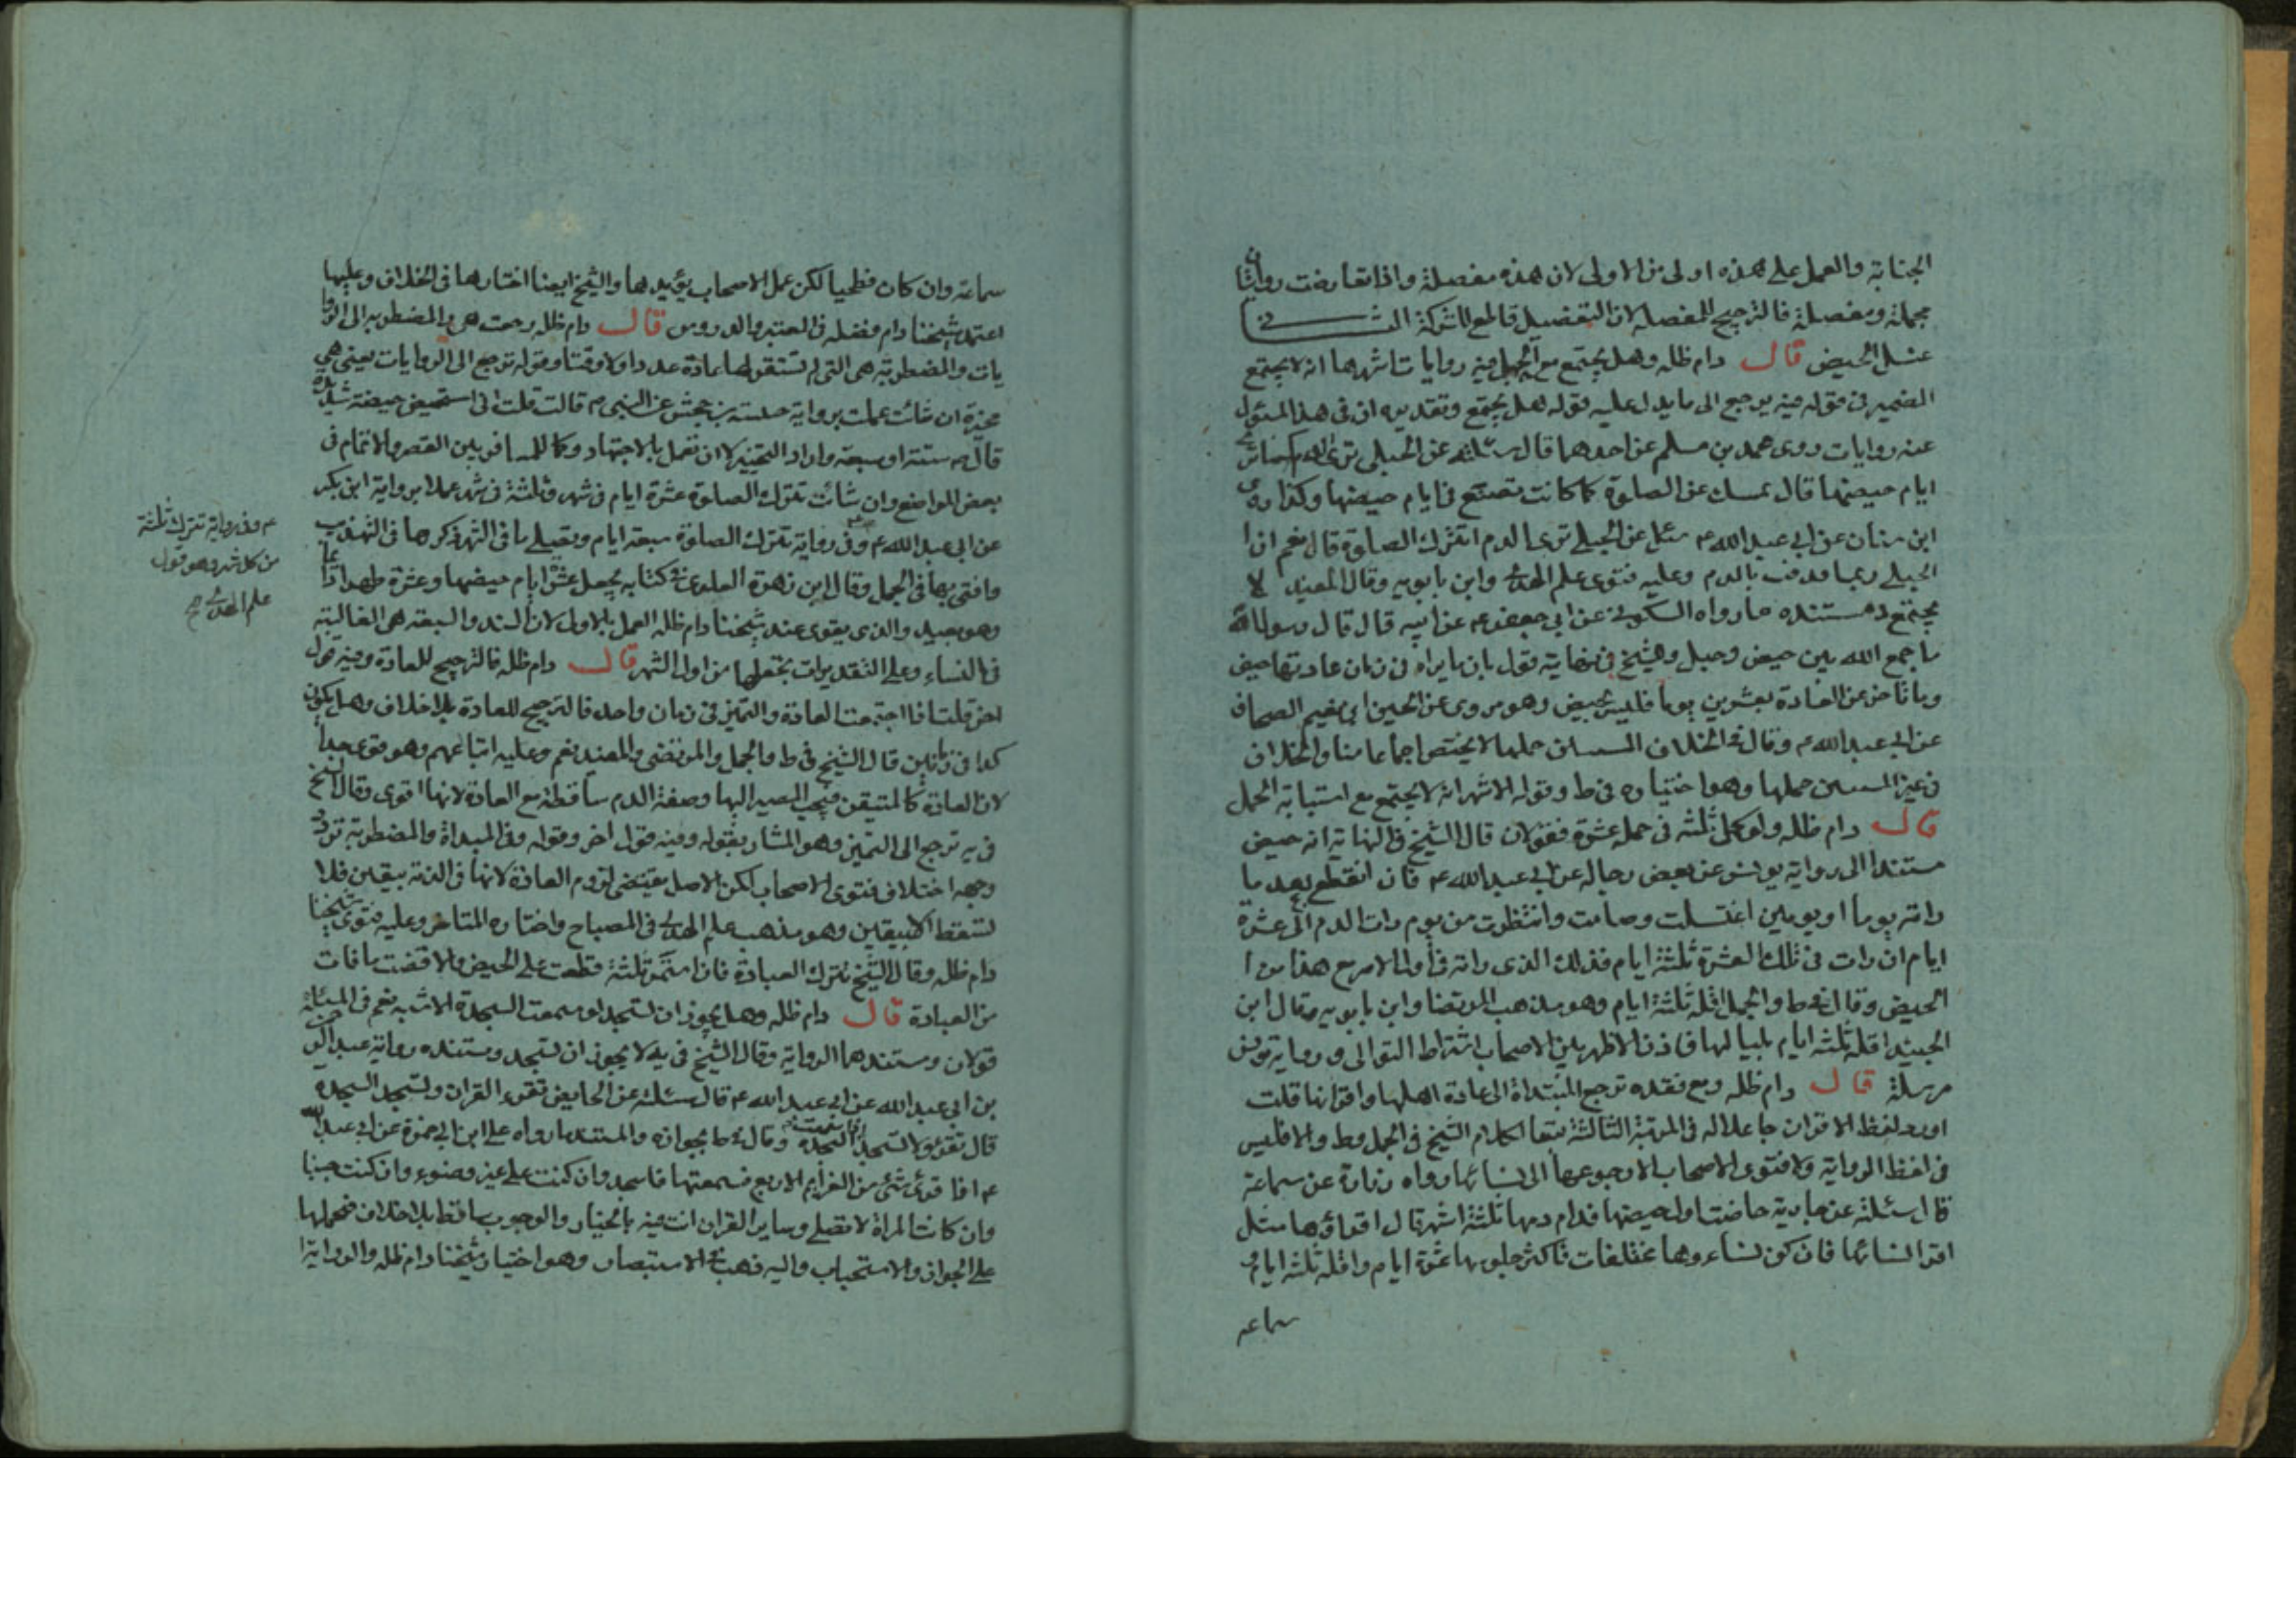 الجنابة والعمل على هذه اولى من الاولى لان هذه مفصلة واذا تعارضت روايتان
مجملة ومفصلة فالترجيح للمفصلة لان التفصيل قاطع للشركة
غسل الحيض قال دام ظله وهل يجتمع مع الحمل فيه روايات اشهرها انه لا يجتمع
الضمير في قوله فيه يرجع الى ما يدل عليه قوله هل يجتمع وتقديره ان في هذا المسئول
عنه روايات روى محمد بن مسلم عن احدهما قال سئلته عن الحبلى ترى الدم كما كانت
ايام حيضها قال تمسك عن الصلوة كما كانت تصنع في ايام حيضها وكذا روى
ابن سنان عن ابي عبد الله ع سئل عن الحبلى ترى الدم اتترك الصلوة قال نعم ان
الحبلى ربما قذفت بالدم وعليه فتوى علم الهدى وابن بابويه وقال المفيد لا
يجتمع ومستنده ما رواه السكوني عن ابي جعفر ع عن ابيه قال قال رسول الله
ما جمع الله بين حيض وحبل وللشيخ في نهايته قول بان ما يراه في زمان عادتها حيض
وما تاخر عن العادة بعشرين يوما فليس بحيض وهو مروى عن الحسين ابن نعيم الصحاف
عن ابي عبد الله ع وقال في الخلاف المستبين حملها لا يختص اجماعا منا والخلاف
في غير المستبين حملها وهو اختياره في ط وقوله الاشهر انه لا يجتمع مع استبانة الحمل
قال دام ظله ولو كمل ثلثه في جملة عشرة فقولان قال الشيخ في النهاية انه حيض
مستندا الى رواية يونس عن بعض رجاله عن ابي عبد الله ع فان انقطع بعد ما
راته يوما او يومين اغتسلت وصامت وانتظرت من يوم رات الدم الى عشرة
ايام ان رات في تلك العشرة ثلثة ايام فذلك الذي راته في اول الامر مع هذا من ا
الحيض وقال في ط والجمل اقله ثلثة ايام وهو مذهب المرتضا وابن بابويه وقال ابن
الجنيد اقله ثلثه ايام بلياليها فاذن الاظهر بين الاصحاب اشتراط التوالى ورواية يونس
مرسلة قال دام ظله ومع فقده ترجع المبتداة الى عادة اهلها واقرانها قلت
اورد لفظ الاقران جاعلا له في المرتبة الثالثة متبعا لكلام الشيخ في الجمل وط والا فليس
في لفظ الرواية ولا فتوى الاصحاب الا رجوعها الى نسائها رواه زرارة عن سماعة
قال سئلته عن جارية حاضت اول حيضها فدام دمها ثلثة اشهر قال اقراؤها مثل
اقراء نسائها فان كن نساءوها مختلفات فاكثر جلوسها عشرة ايام واقله ثلثه ايام
سماعه
سماعة وان كان فطحيا لكن عمل الاصحاب يؤيدها والشيخ ايضا اختارها في الخلاف وعليها
اعتمد شيخنا دام فضله في المعتبر والدروس قال دام ظله رجعت هي والمضطربه الى الروا
يات والمضطربة هي التي لم تستقر لها عادة عددا ولا وقتا وقوله ترجع الى الروايات يعنى هي
مخيرة ان شائت عملت برواية حمنة بنت جحش عن النبي ص قالت قلت انى استحيض حيضة شديدة
قال ص ستة او سبعة واراد التخيير لا ان تعمل بالاجتهاد وكما للمسافر بين القصر والاتمام في
بعض المواضع وان شائت تترك الصلوة عشرة ايام في شهر وثلثة في شهر عملا برواية ابن بكير
عن ابي عبد الله ع وفي رواية تترك الصلوة سبعة ايام وتصلى باقى الشهر ذكرها في التهذيب
وافتى بها في الجمل وقال ابن زهرة العلوى في كتابه يجعل عشرة ايام حيضها وعشرة طهرا
وهو بعيد والذى يقوى عند شيخنا دام ظله العمل بالاولى لان الستة والسبعة هي الغالبة
في النساء وعلى التقديرات تجعلها من اول الشهر قال دام ظله فالترجيح للعادة وفيه قول
اخر قلت اذا اجتمعت العادة والتميز في زمان واحد فالترجيح للعادة بلا خلاف وهل يكون
كذا في زمانين قال الشيخ في ط والجمل والمرتضى والمفيد نعم وعليه اتباعهم وهو قوى جدا
لان العادة كالمتيقن فيجب المصير اليها وصفة الدم ساقطة مع العادة لانها اقوى وقال الشيخ
في يه ترجع الى التميز وهو المشار بقوله وفيه قول اخر وقوله وفي المبتداة والمضطربة تردد
وجهه اختلاف فتوى الاصحاب لكن الاصل يقتضى لزوم العبادة لانها في الذمة بيقين فلا
تسقط الا بيقين وهو مذهب علم الهدى في المصباح واختاره المتاخر وعليه فتوى شيخنا
دام ظله وقال الشيخ تترك العبادة فان استمر ثلثة قطعت على الحيض والا قضت ما فات
من العبادة قال دام ظله وهل يجوز ان تسجد لو سمعت السجدة الاشبه نعم في المسئلة
قولان ومستندهما الرواية وقال الشيخ في يه لا يجوز ان تسجد ومستنده رواية عبد الرحمن
بن ابي عبد الله عن ابي عبد الله ع قال سئلته عن الحايض تقرء القران وتسجد السجدة
قال تقرء ولا تسجد السجدة وقال في ط بجوازه والمستند ما رواه على ابن ابي حمزة عن ابي عبد الله
ع اذا قرئ شئ من العزايم الاربع فسمعتها فاسجد وان كنت على غير وضوء وان كنت جنبا
وان كانت المراة لا تصلى وساير القران انت فيه بالخيار والوجوب ساقط بلا خلاف فحملها
على الجواز والاستحباب واليه ذهب في الاستبصار وهو اختيار شيخنا دام ظله والرواية ا
ع وفي رواية تترك ثلثة
من كل شهر وهو قول
علم الهدى